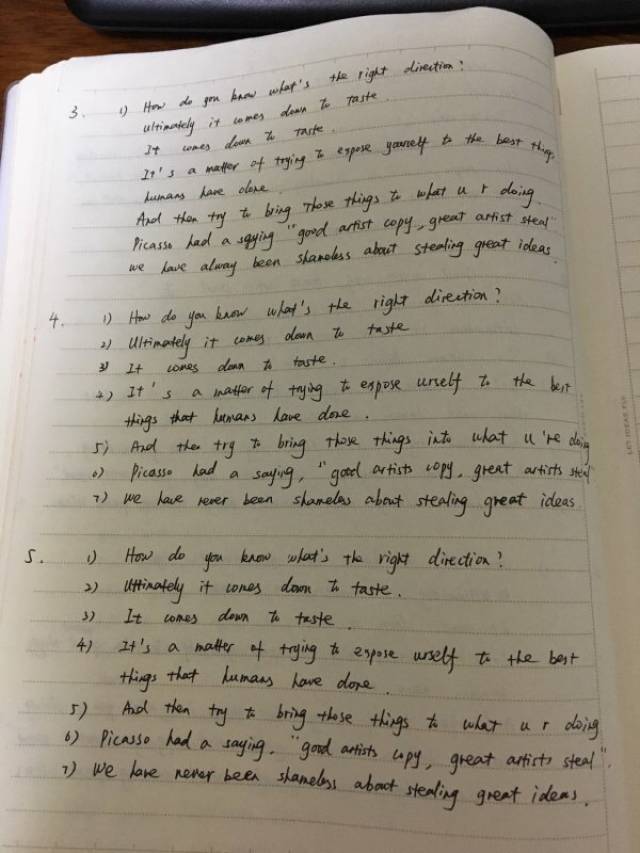 3. 1) How do you know what's the right direction?
ultimately it comes down to taste.
It comes down to taste.
It's a matter of trying to expose yourself to the best things
humans have done.
And then try to bring those things to what u r doing
Picasso had a saying "good artist copy, great artist steal"
we have alway been shameless about stealing great ideas.
4. 1) How do you know what's the right direction?
2) Ultimately it comes down to taste
3) It comes down to taste.
4) It's a matter of trying to expose urself to the best
things that humans have done.
5) And then try to bring those things into what u're doing
6) Picasso had a saying, "good artists copy, great artists steal"
7) we have never been shameless about stealing great ideas
5. 1) How do you know what's the right direction?
2) Ultimately it comes down to taste.
3) It comes down to taste.
4) It's a matter of trying to expose urself to the best
things that humans have done.
5) And then try to bring those things to what u r doing
6) Picasso had a saying, "good artists copy, great artists steal".
7) We have never been shameless about stealing great ideas.